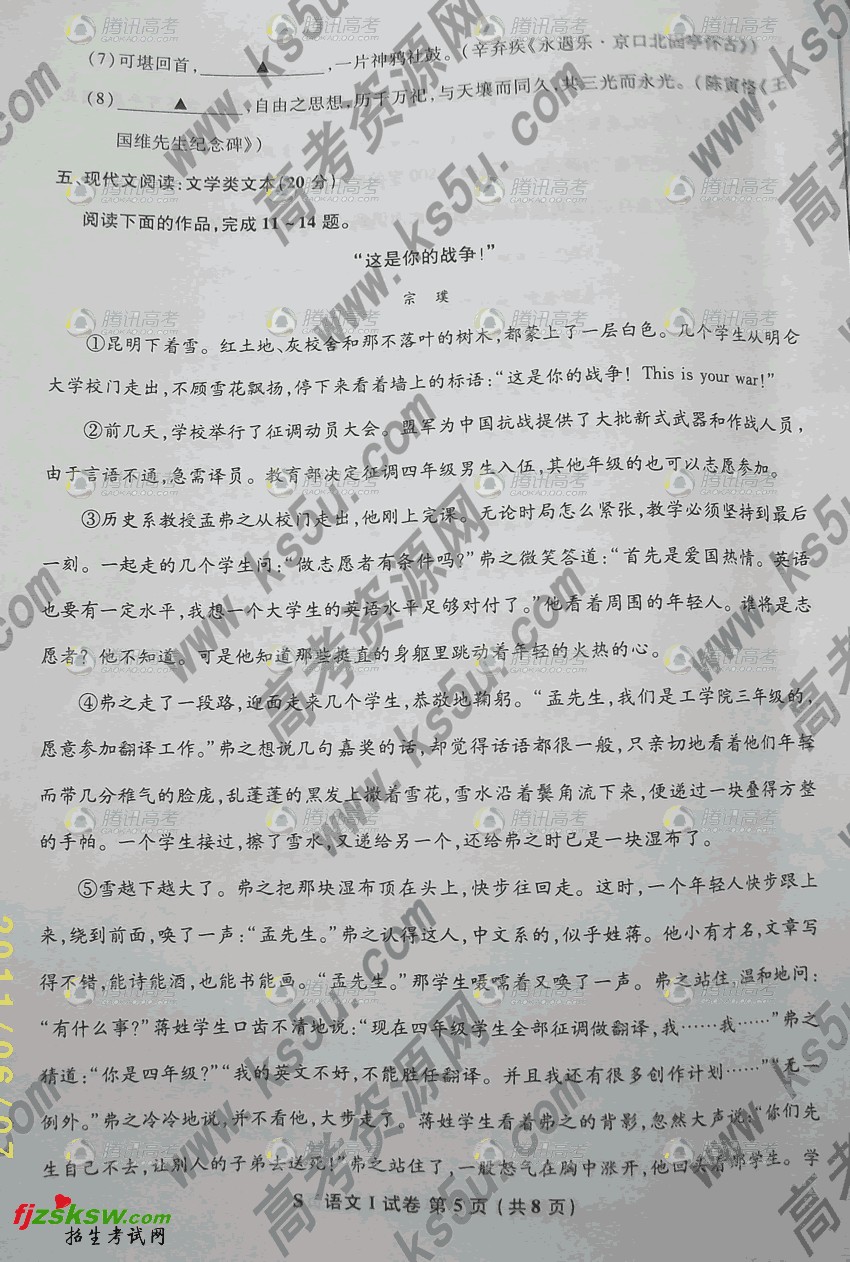 (7)可堪回首,▲,一片神鸦社鼓。(辛弃疾《永遇乐·京口北固亭怀古》)
(8)▲,自由之思想,历千万祀,与天壤而同久,共三光而永光。(陈寅恪《王
国维先生纪念碑》)
五、现代文阅读:文学类文本(20分)
阅读下面的作品,完成11~14题。
“这是你的战争!”
宗 璞
①昆明下着雪。红土地、灰校舍和那不落叶的树木,都蒙上了一层白色。几个学生从明仑
大学校门走出,不顾雪花飘扬,停下来看着墙上的标语:“这是你的战争! This is your war!”
②前几天,学校举行了征调动员大会。盟军为中国抗战提供了大批新式武器和作战人员,
由于言语不通,急需译员。教育部决定征调四年级男生入伍,其他年级的也可以志愿参加。
③历史系教授孟弗之从校门走出,他刚上完课。无论时局怎么紧张,教学必须坚持到最后
一刻。一起走的几个学生问:“做志愿者有条件吗?”弗之微笑答道:“首先是爱国热情。英语
也要有一定水平,我想一个大学生的英语水平足够对付了。”他看着周围的年轻人。谁将是志
愿者?他不知道。可是他知道那些挺直的身躯里跳动着年轻的火热的心。
④弗之走了一段路,迎面走来几个学生,恭敬地鞠躬。“孟先生,我们是工学院三年级的,
愿意参加翻译工作。”弗之想说几句嘉奖的话,却觉得话语都很一般,只亲切地看着他们年轻
而带几分稚气的脸庞,乱蓬蓬的黑发上撒着雪花,雪水沿着鬓角流下来,便递过一块叠得方整
的手帕。一个学生接过,擦了雪水,又递给另一个,还给弗之时已是一块湿布了。
⑤雪越下越大了。弗之把那块湿布顶在头上,快步往回走。这时,一个年轻人快步跟上
来,绕到前面,唤了一声:“孟先生。”弗之认得这人,中文系的,似乎姓蒋。他小有才名,文章写
得不错,能诗能酒,也能书能画。“孟先生。”那学生嗫嚅着又唤了一声。弗之站住,温和地问:
“有什么事?”蒋姓学生口齿不清地说:“现在四年级学生全部征调做翻译,我……我……”弗之
猜道:“你是四年级?”“我的英文不好,不能胜任翻译。并且我还有很多创作计划……”“无一
例外。”弗之冷冷地说,并不看他,大步走了。蒋姓学生看着弗之的背影,忽然大声说:“你们先
生自己不去,让别人的子弟去送死!”弗之站住了,一股怒气在胸中涨开,他回头看那学生。学
S 语文Ⅰ试卷 第5页(共8页)
2011/06/07
fjzsksw.com
招生考试网
腾讯高考
高考资源网
www.ks5u.com